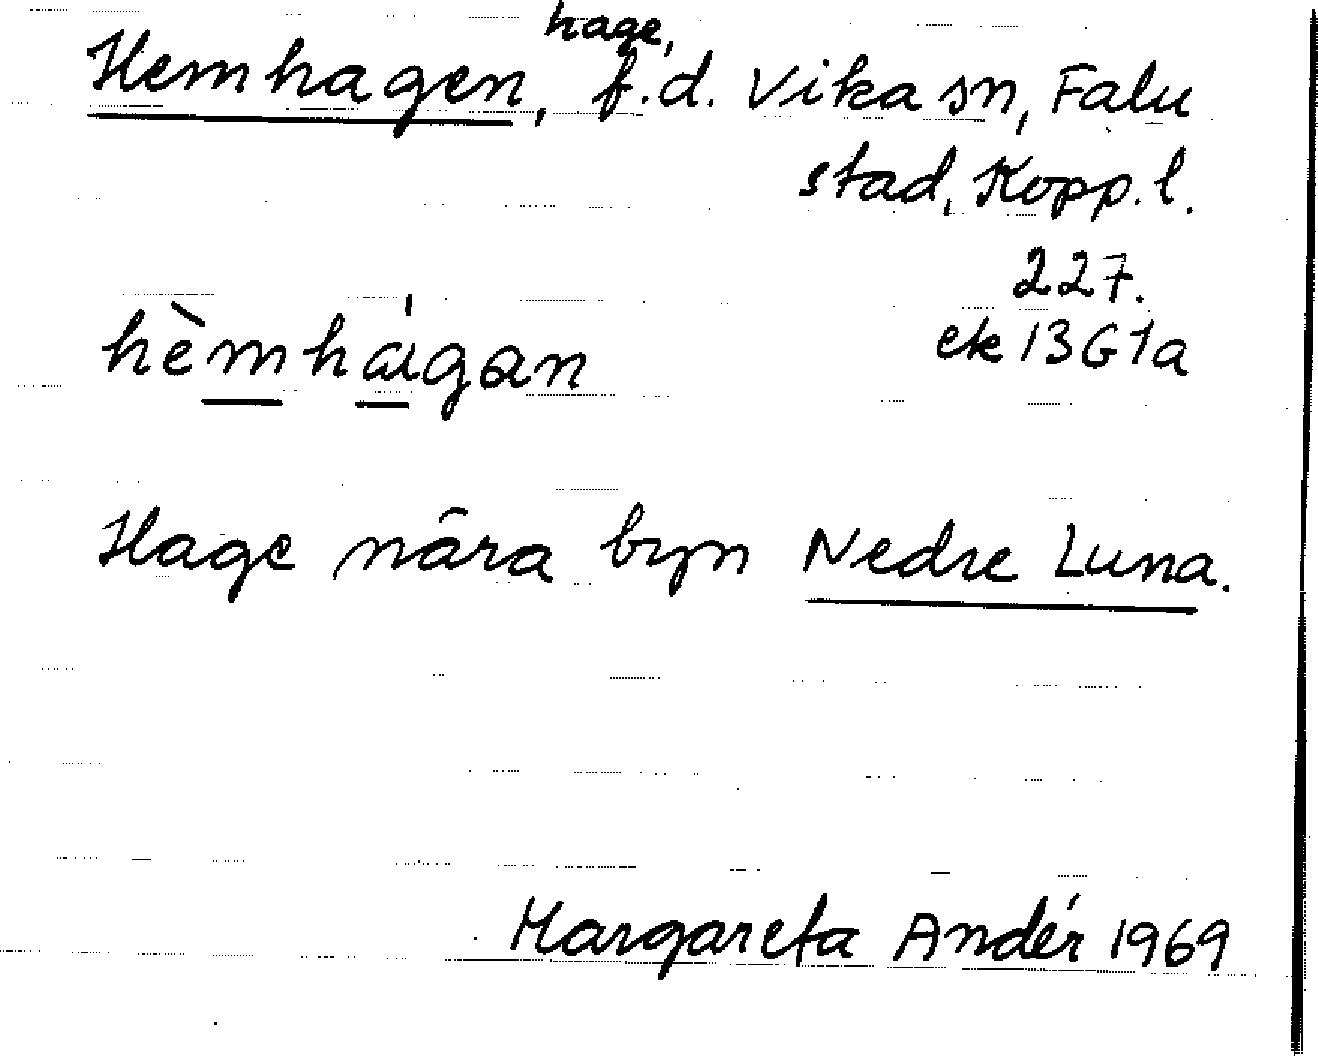 Hemhagen, hage, f.d. Vika sn, Falu
stad, Kopp. l.
227.
ek 13G1a
hèmhágan
Hage nära byn Nedre Luna.
Margareta Andér 1969